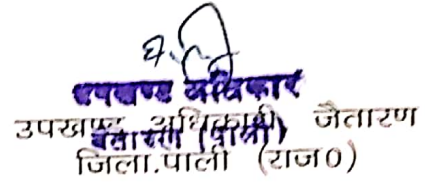 उपखण्ड अधिकारी
उपखण्ड अधिकारी जैतारण
जैतारण (पाली)
जिला.पाली (राज0)